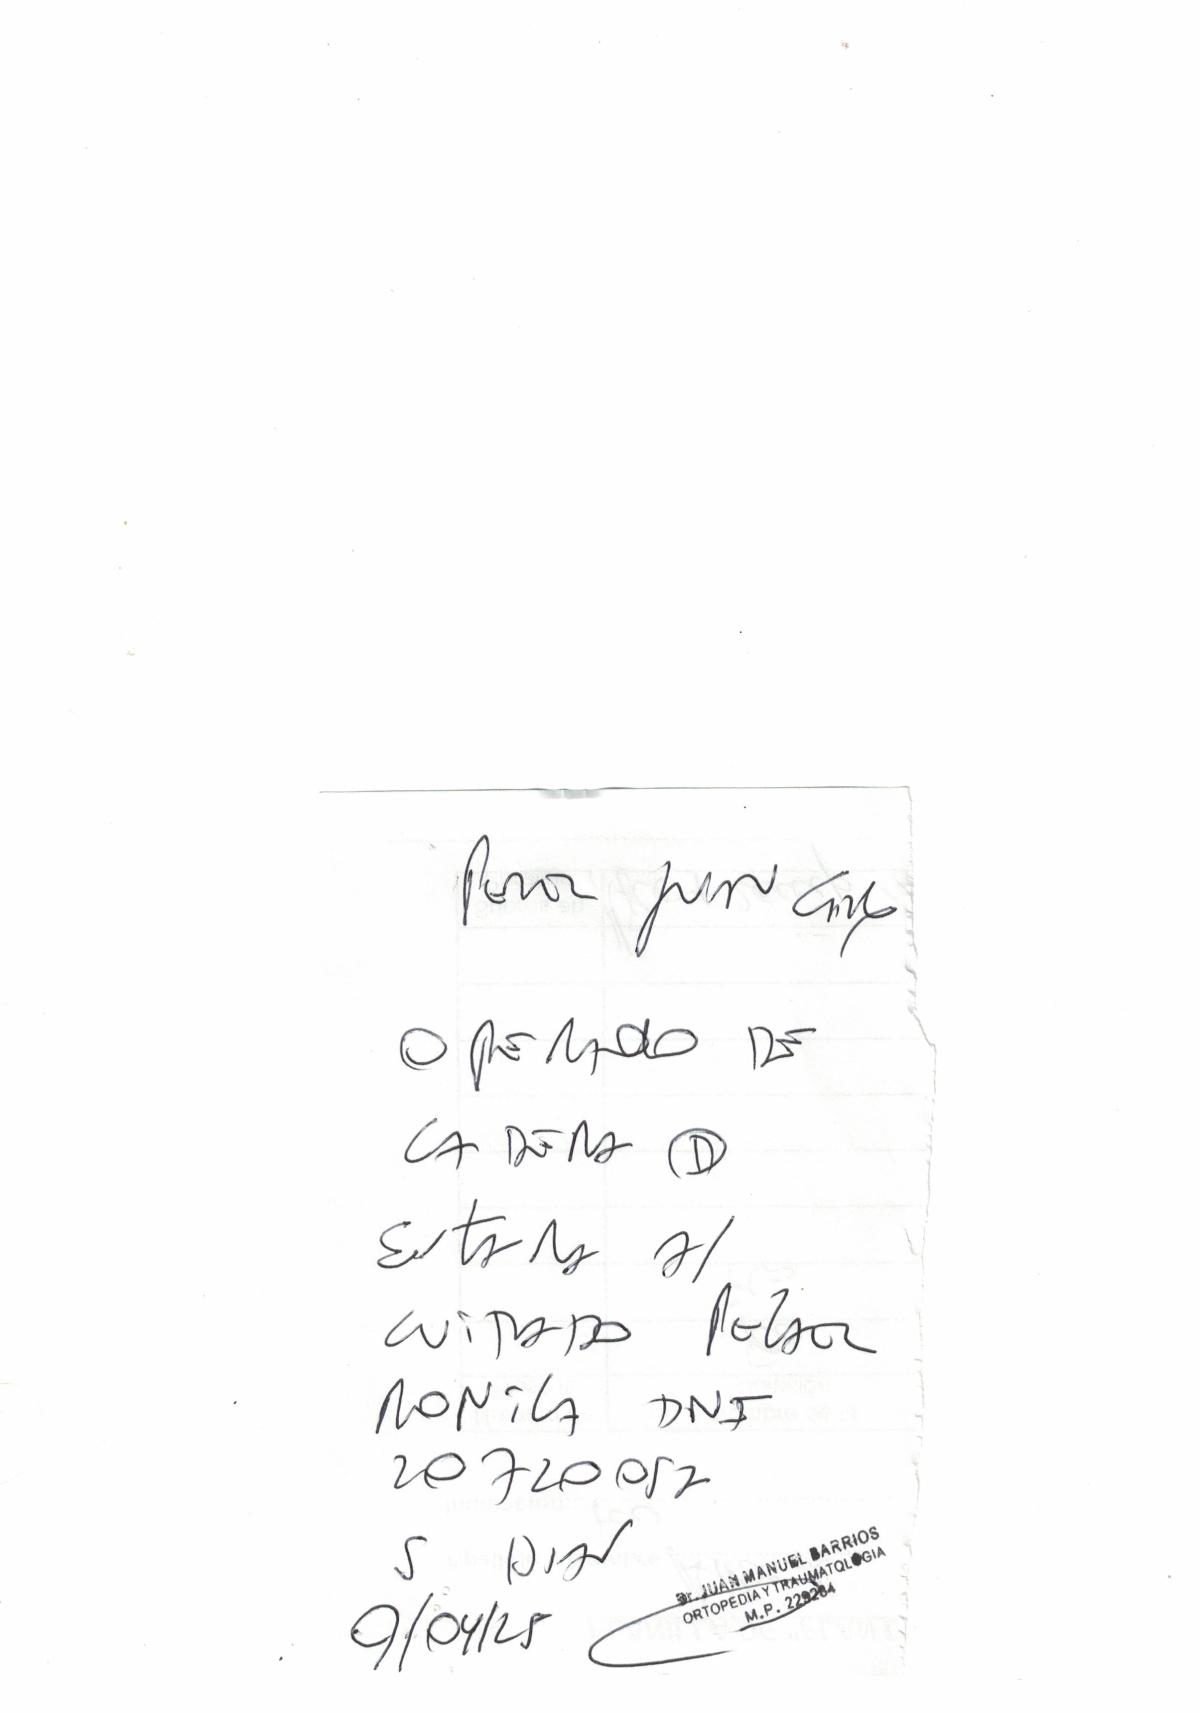 Juan Carlos
Operado de
cadera D
Estara a/
cuidado
Monica DNI
20720052
5 Dias
9/04/25
Dr. JUAN MANUEL BARRIOS
ORTOPEDIA Y TRAUMATOLOGIA
M.P. 229264